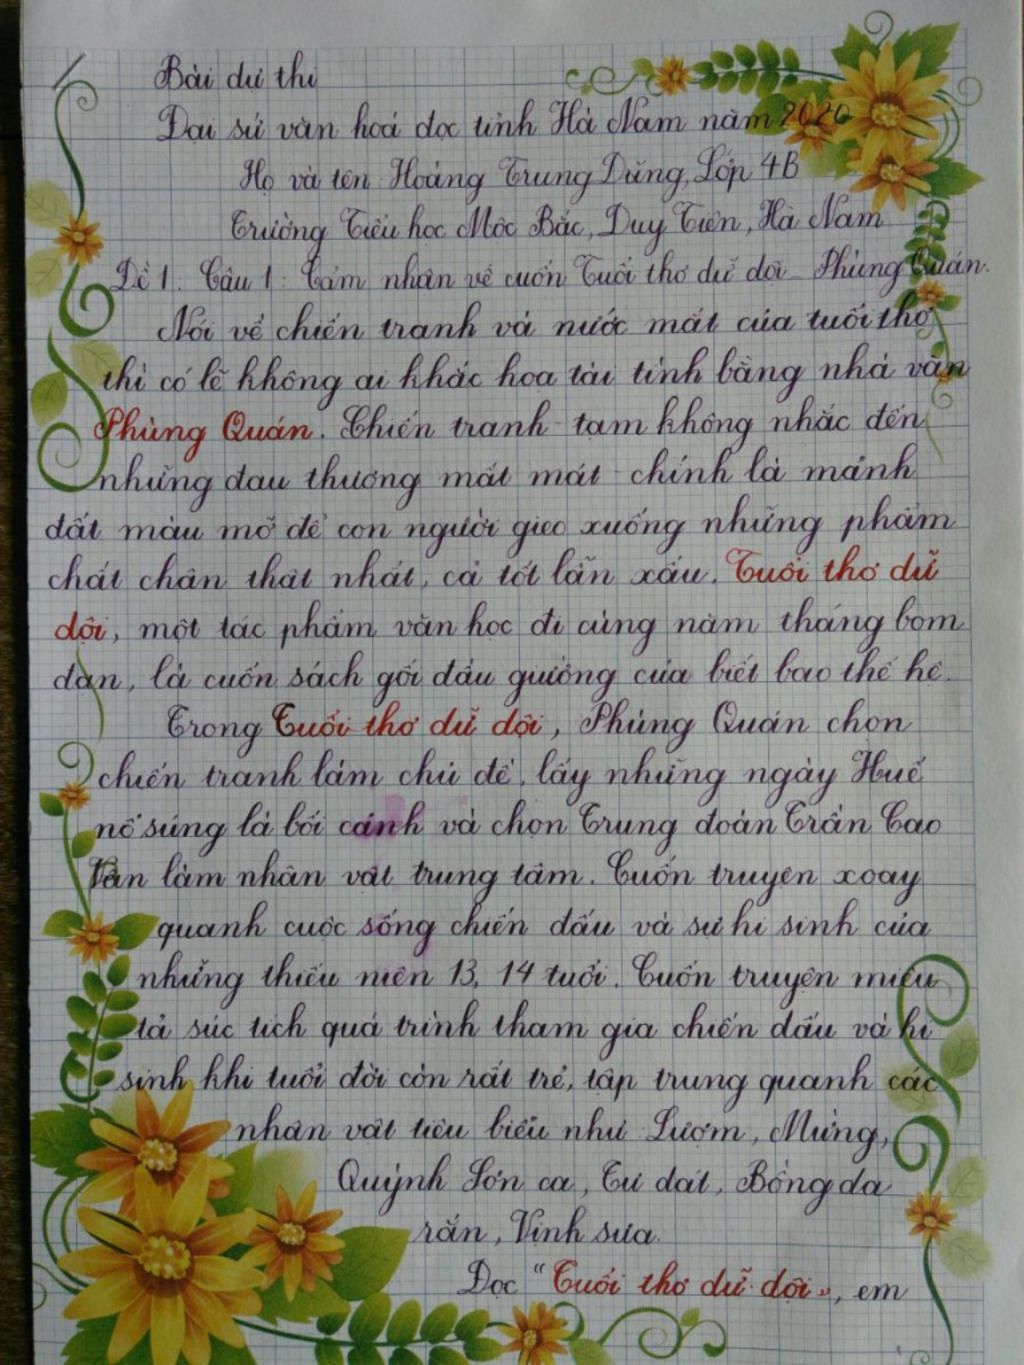 Bài dự thi
Đại sứ văn hoá đọc tỉnh Hà Nam năm 2020
Họ và tên: Hoàng Trung Dũng, Lớp 4B
Trường Tiểu học Mộc Bắc, Duy Tiên, Hà Nam
Đề 1: Câu 1: Cảm nhận về cuốn Tuổi thơ dữ dội - Phùng Quán.
Nói về chiến tranh và nước mắt của tuổi thơ
thì có lẽ không ai khắc hoạ tài tình bằng nhà văn
Phùng Quán. Chiến tranh - tạm không nhắc đến
những đau thương mất mát - chính là mảnh
đất màu mỡ để con người gieo xuống những phẩm
chất chân thật nhất, cả tốt lẫn xấu. Tuổi thơ dữ
dội, một tác phẩm văn học đi cùng năm tháng bom
đạn, là cuốn sách gối đầu giường của biết bao thế hệ.
Trong Tuổi thơ dữ dội, Phùng Quán chọn
chiến tranh làm chủ đề, lấy những ngày Huế
nổ súng là bối cảnh và chọn Trung đoàn Trần Cao
Vân làm nhân vật trung tâm. Cuốn truyện xoay
quanh cuộc sống chiến đấu và sự hi sinh của
những thiếu niên 13, 14 tuổi. Cuốn truyện miêu
tả súc tích quá trình tham gia chiến đấu và hi
sinh khi tuổi đời còn rất trẻ, tập trung quanh các
nhân vật tiêu biểu như Lượm, Mừng,
Quỳnh Sơn ca, Tư dát, Bồng da
rắn, Vịnh sưa.
Đọc "Tuổi thơ dữ dội", em